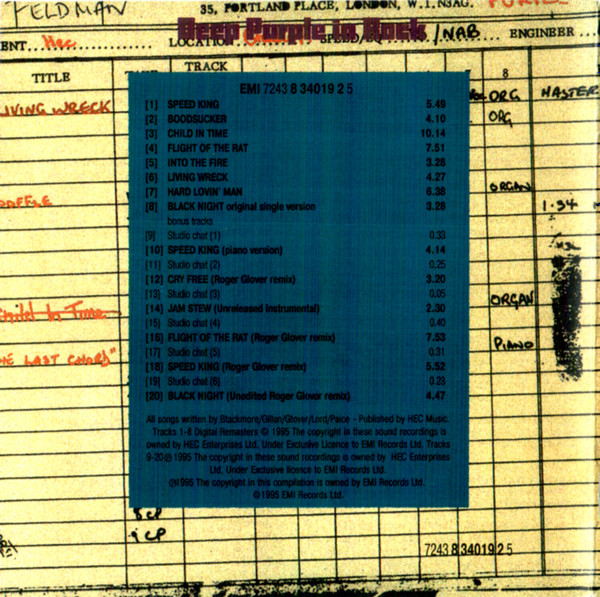 FELDMAN
35, PORTLAND PLACE, LONDON, W.1.
Deep Purple in Rock
ENT... Hec LOCATION /NAB ENGINEER
TITLE TRACK 8
EMI 7243 8 34019 2 5
LIVING WRECK ORG MASTER
ORG
[1] SPEED KING 5.49
[2] BOODSUCKER 4.10
[3] CHILD IN TIME 10.14
[4] FLIGHT OF THE RAT 7.51
[5] INTO THE FIRE 3.28
[6] LIVING WRECK 4.27
[7] HARD LOVIN' MAN 6.38
[8] BLACK NIGHT original single version 3.28
bonus tracks
[9] Studio chat (1) 0.33
[10] SPEED KING (piano version) 4.14
[11] Studio chat (2) 0.25
[12] CRY FREE (Roger Glover remix) 3.20
[13] Studio chat (3) 0.05
[14] JAM STEW (Unreleased instrumental) 2.30
[15] Studio chat (4) 0.40
[16] FLIGHT OF THE RAT (Roger Glover remix) 7.53
[17] Studio chat (5) 0.31
[18] SPEED KING (Roger Glover remix) 5.52
[19] Studio chat (6) 0.23
[20] BLACK NIGHT (Unedited Roger Glover remix) 4.47
ORGAN
1.34
Child In Time ORGAN
HE LAST CHORD" PIANO
All songs written by Blackmore/Gillan/Glover/Lord/Paice - Published by HEC Music.
Tracks 1-8 Digital Remasters © 1995 The copyright in these sound recordings is
owned by HEC Enterprises Ltd. Under Exclusive Licence to EMI Records Ltd. Tracks
9-20 ℗ 1995 The copyright in these sound recordings is owned by HEC Enterprises
Ltd. Under Exclusive licence to EMI Records Ltd.
℗1995 The copyright in this compilation is owned by EMI Records Ltd.
©1995 EMI Records Ltd.
8 CP
9 CP
7243 8 34019 2 5